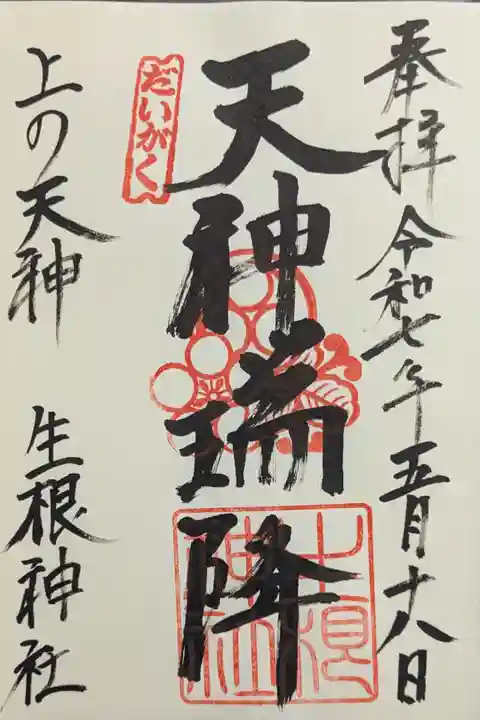 奉拝 令和七年 五月十八日
だいがく
天神瑞降
上の天神 生根神社